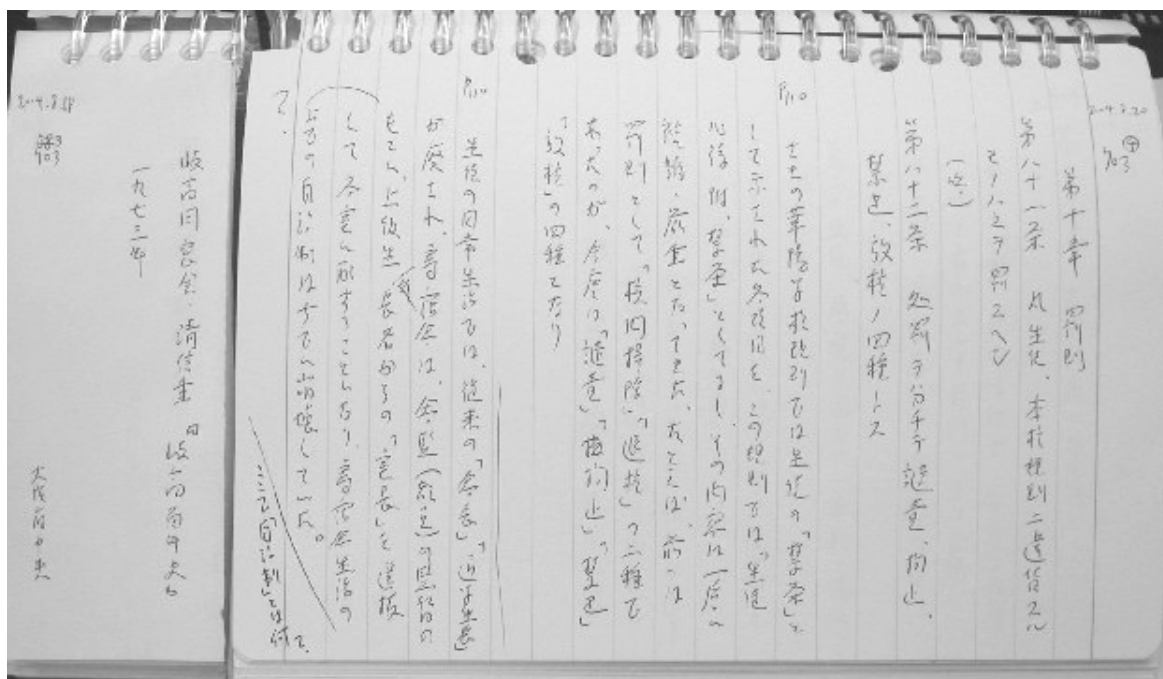 2004.8.20
703
第十章 罰則
第八十一条 凡生徒、本校規則ニ違背スル
モノハ之ヲ罰スヘシ
(略)
第八十二条 処罰ヲ分チテ譴責、拘止、
禁足、放校ノ四種トス
P110
の華陽学校規則では生徒の「禁条」と
して示された各項目を、この規則では「生徒
心得附、禁条」としてまし、その内容は一層
厳酷となってきた。たとえば、前には
罰則として「校内掃除」「退校」の二種で
あったのが、今度は「譴責」「拘止」「禁足」
「放校」の四種となり
P110
生徒の日常生活では、従来の「舎長」
が廃され、寄宿舎は、舎監の監督の
もとに、上級生 長者からの「室長」を選抜
して各室に配することとなり、寄宿舎生活の
自治制はすでに崩壊していた。
ここで「自治制」とは何
岐高同窓会、清信重『岐高百年史』
一九七三年